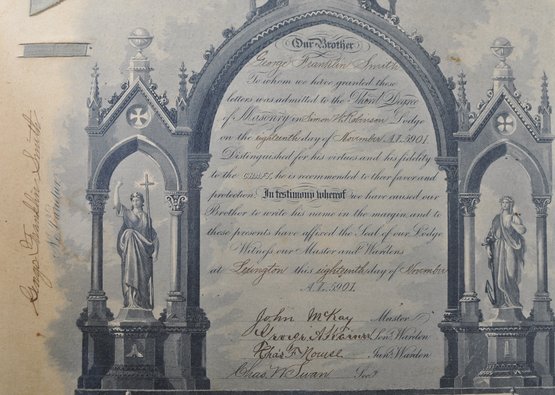 Our Brother
George Franklin Smith
To whom we have granted these
letters was admitted to the Third Degree
of Masonry in Simon W. Robinson Lodge
on the eighteenth day of November A.L. 5901.
Distinguished for his virtues and his fidelity
to the CRAFT, he is recommended to their favor and
protection. In testimony whereof we have caused our
Brother to write his name in the margin, and to
these presents have affixed the Seal of our Lodge
Witness our Master and Wardens
at Lexington this eighteenth day of November
A.L. 5901.
John McKay Master
Sen. Warden
Chas. Jun. Warden
Chas. W. Swan Sec.
George Franklin Smith
Ne Varietur